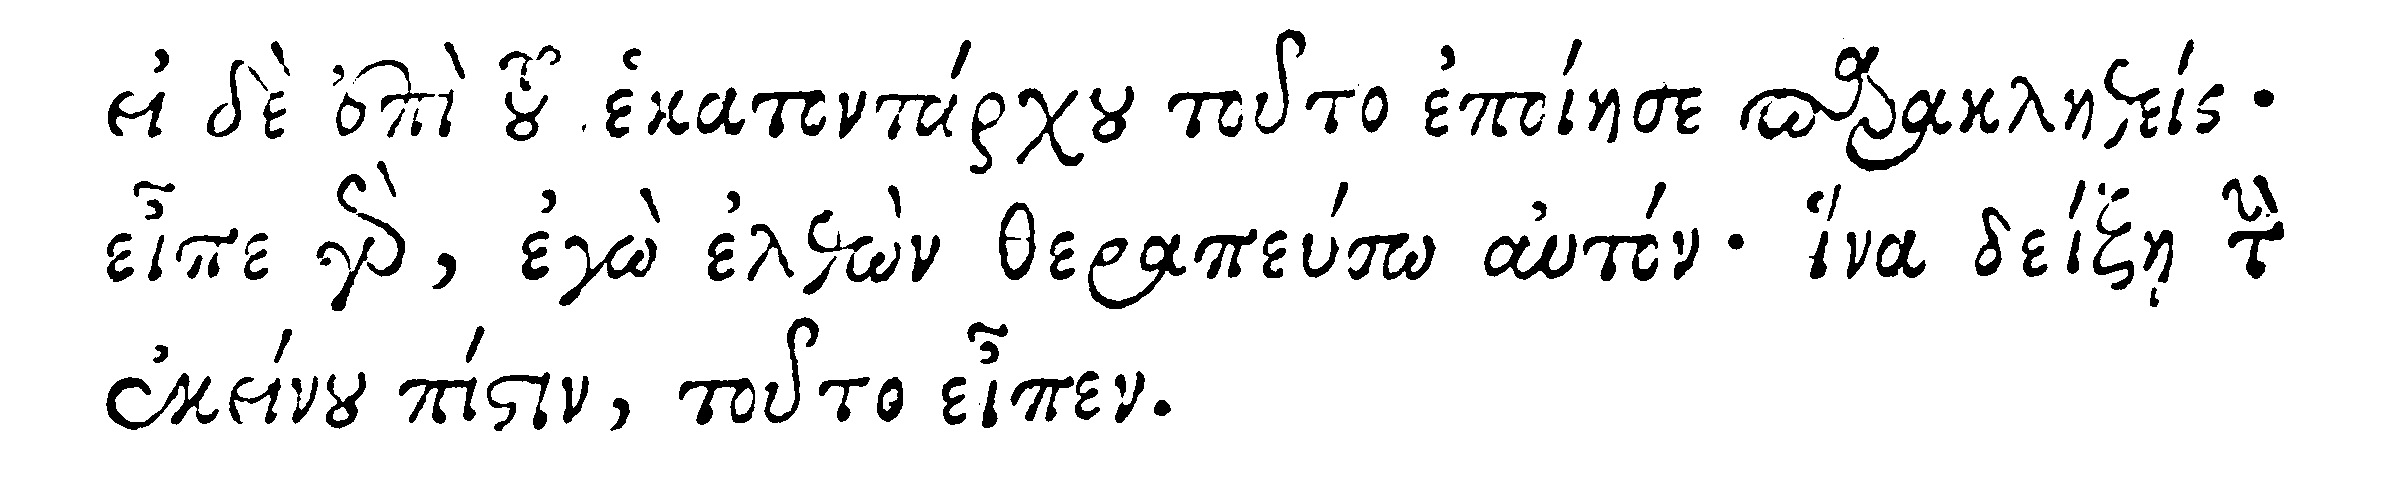 εἰ δὲ ἐπὶ τοῦ ἑκατοντάρχου τοῦτο ἐποίησε παρακληθείς·
εἶπε γὰρ, ἐγὼ ἐλθὼν θεραπεύσω αὐτόν· ἵνα δείξῃ τὴν
ἐκείνου πίστιν, τοῦτο εἶπεν.